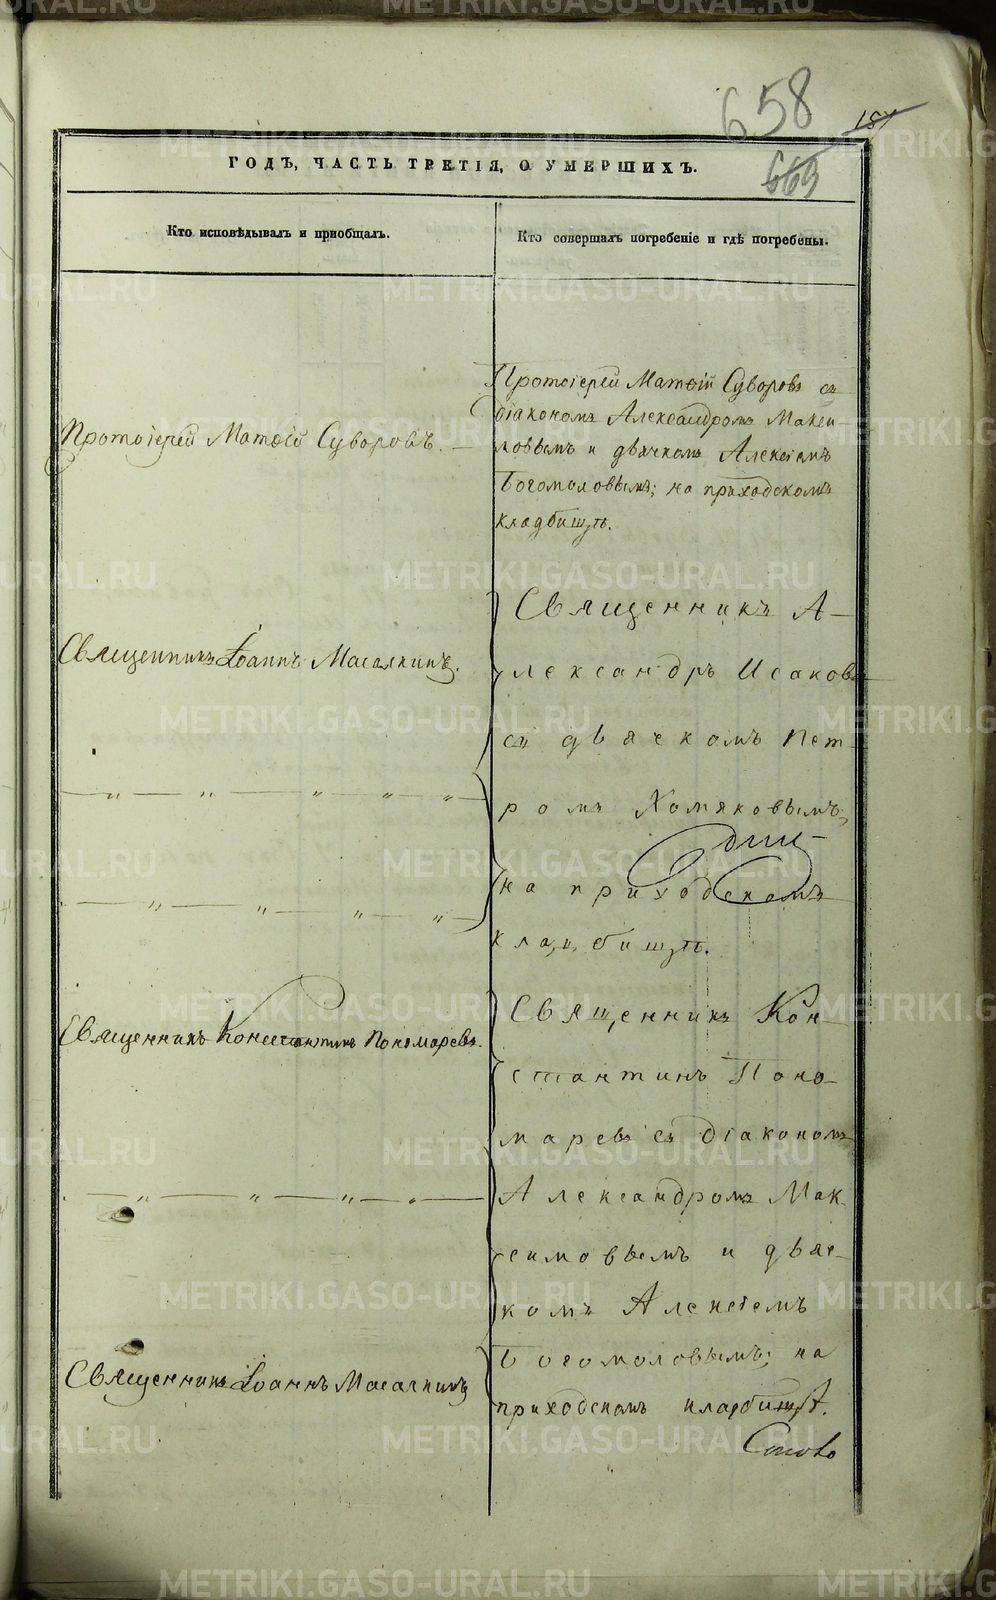 658
187
669
ГОДЪ, ЧАСТЬ ТРЕТІЯ, О УМЕРШИХЪ.
Кто исповѣдывалъ и пріобщалъ.
Кто совершалъ погребеніе и гдѣ погребены.
Протоіерей Матѳій Суворовъ.
Протоіерей Матѳій Суворовъ съ
діакономъ Александромъ Макси-
мовымъ и дьячкомъ Алексіемъ
Богомоловымъ; на приходскомъ
кладбищѣ.
Священникъ Іоаннъ Масалкинъ.
— „ — „ — „ — „ — „ —
— „ — „ — „ — „ —
Священникъ А-
лександръ Исаковъ
съ дьячкомъ Пет-
ромъ Хомяковымъ,
на приходскомъ
кладбищѣ.
Священникъ Константинъ Пономаревъ.
— „ — „ — „ — „ —
Священникъ Іоаннъ Масалкинъ
Священникъ Кон-
стантинъ Поно-
маревъ съ діакономъ
Александромъ Мак-
симовымъ и дьяч-
комъ Алексіемъ
Богомоловымъ; на
приходскомъ кладбищѣ.
METRIKI.GASO-URAL.RU